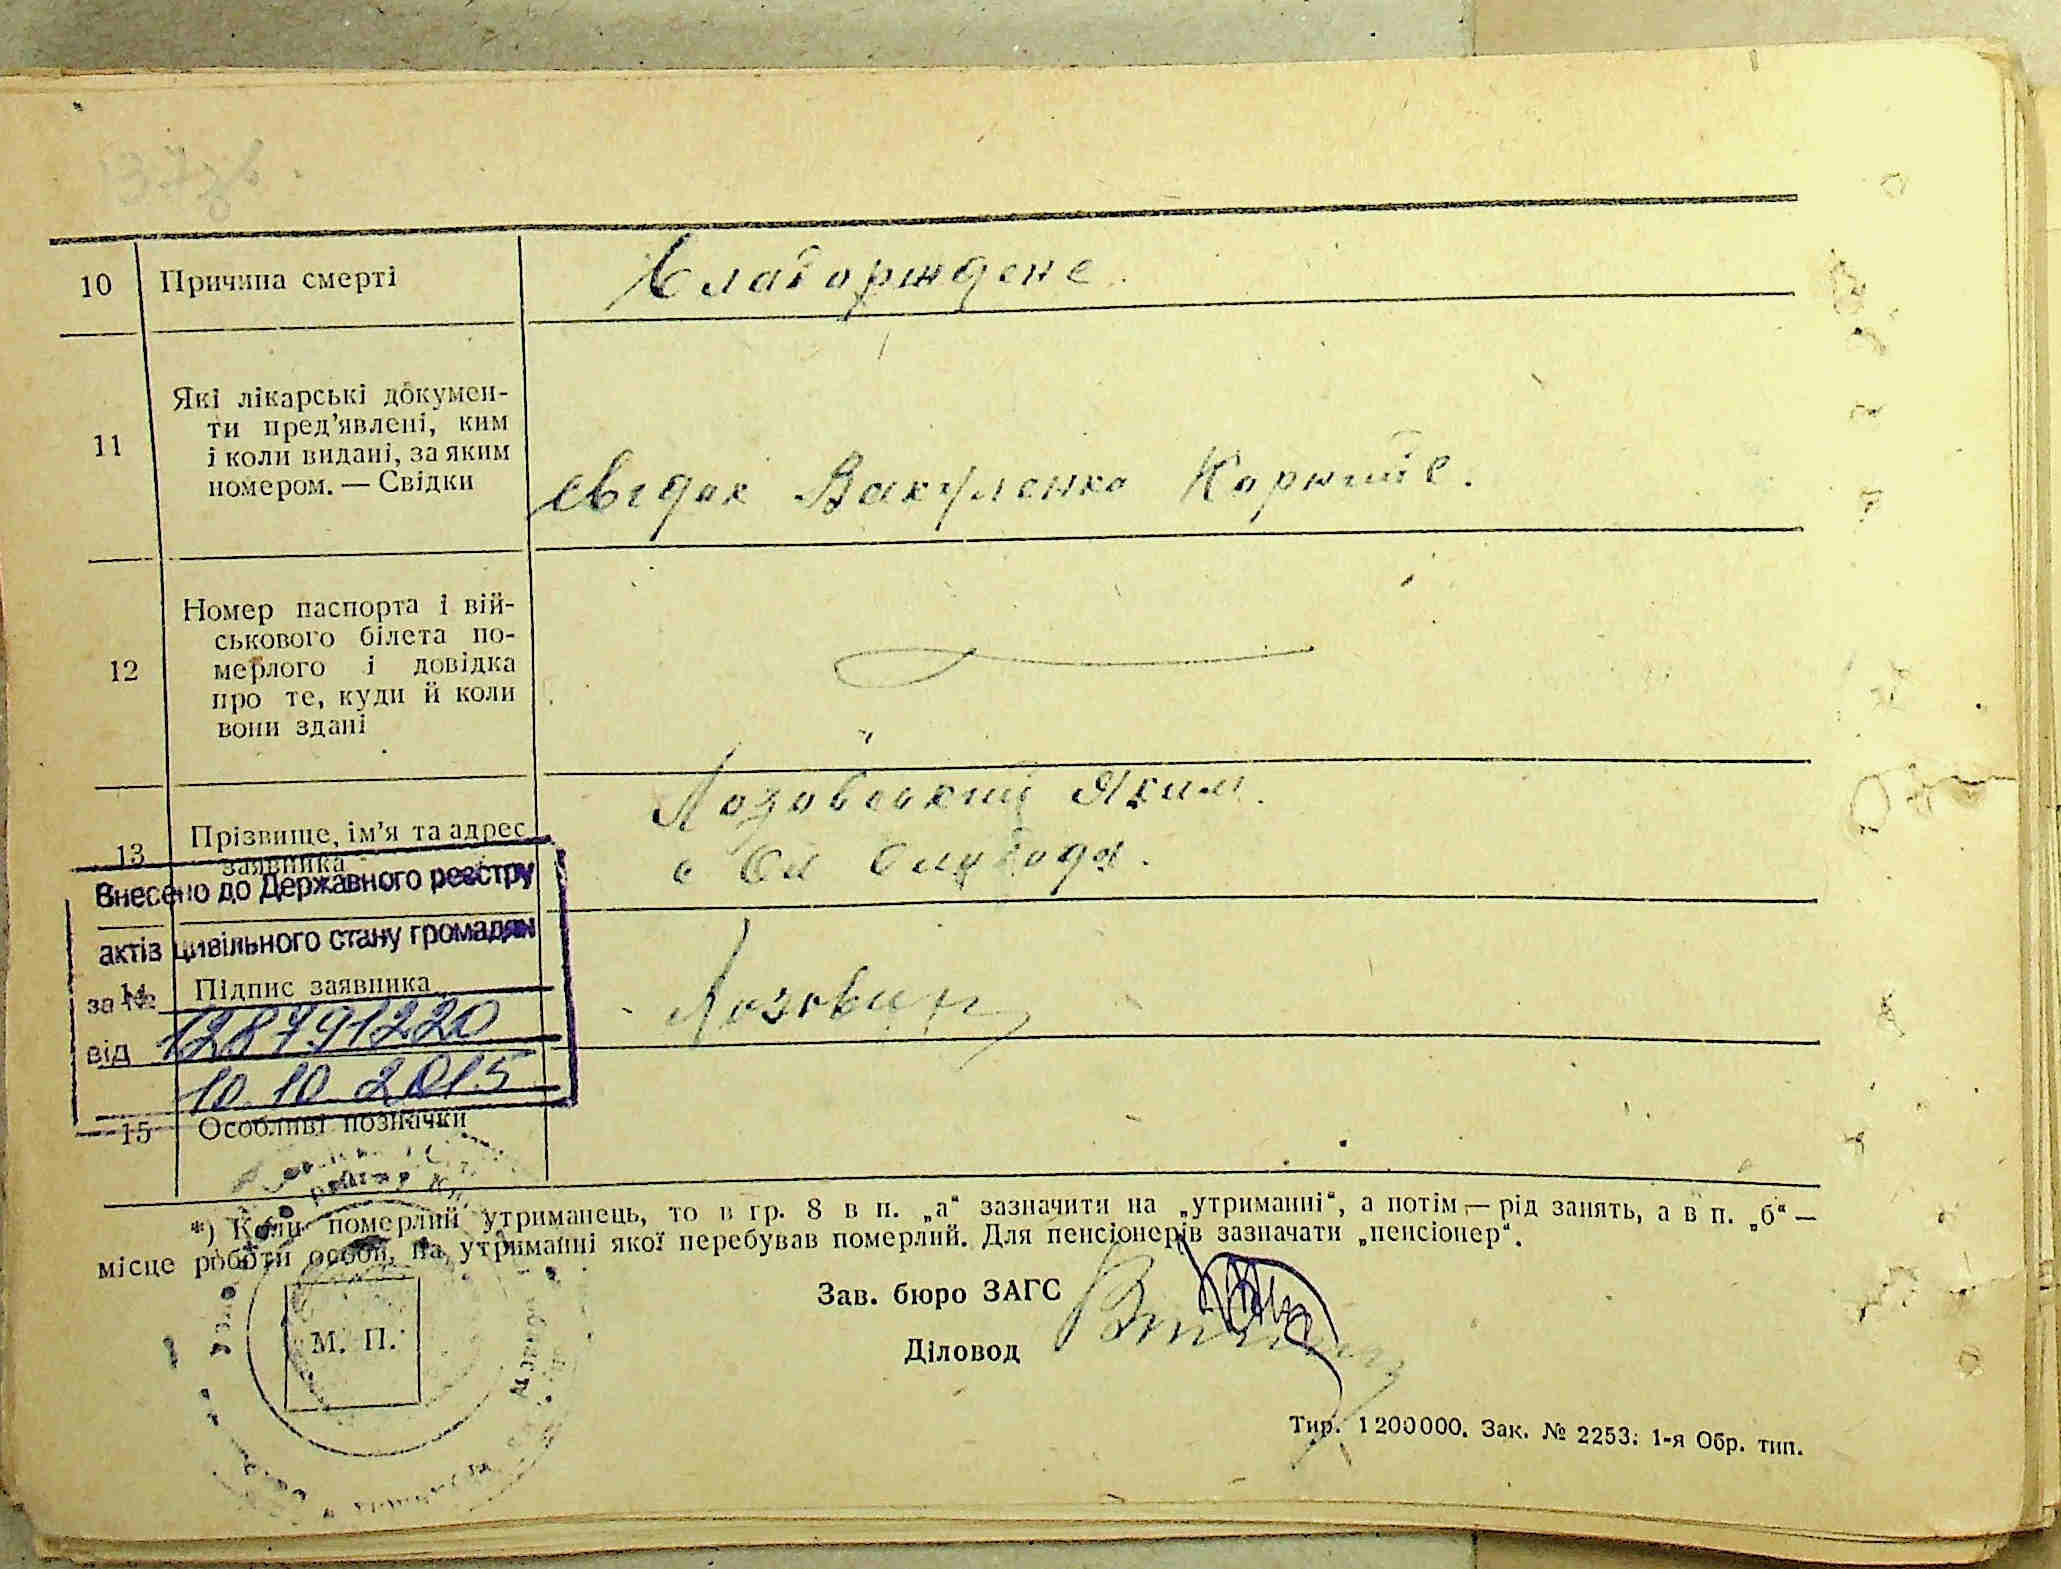 137зв.
10 Причина смерті Слаборждене.
11 Які лікарські докумен-
ти пред'явлені, ким
і коли видані, за яким
номером. — Свідки
свідок Вакуленко
12 Номер паспорта і вій-
ськового білета по-
мерлого і довідка
про те, куди й коли
вони здані
13 Прізвище, ім'я та адрес
заявника
Лозовський Яким.
с Слобода.
Внесено до Державного реєстру
актів цивільного стану громадян
за № 128791220
від 10.10.2015
14 Підпис заявника
15 Особливі позначки
*) Коли померлий утриманець, то в гр. 8 в п. „а“ зазначити на „утриманні“, а потім — рід занять, а в п. „б“ —
місце роботи особи, на утриманні якої перебував померлий. Для пенсіонерів зазначати „пенсіонер“.
Зав. бюро ЗАГС
М. П.
Діловод
Тир. 1200000. Зак. № 2253. 1-я Обр. тип.